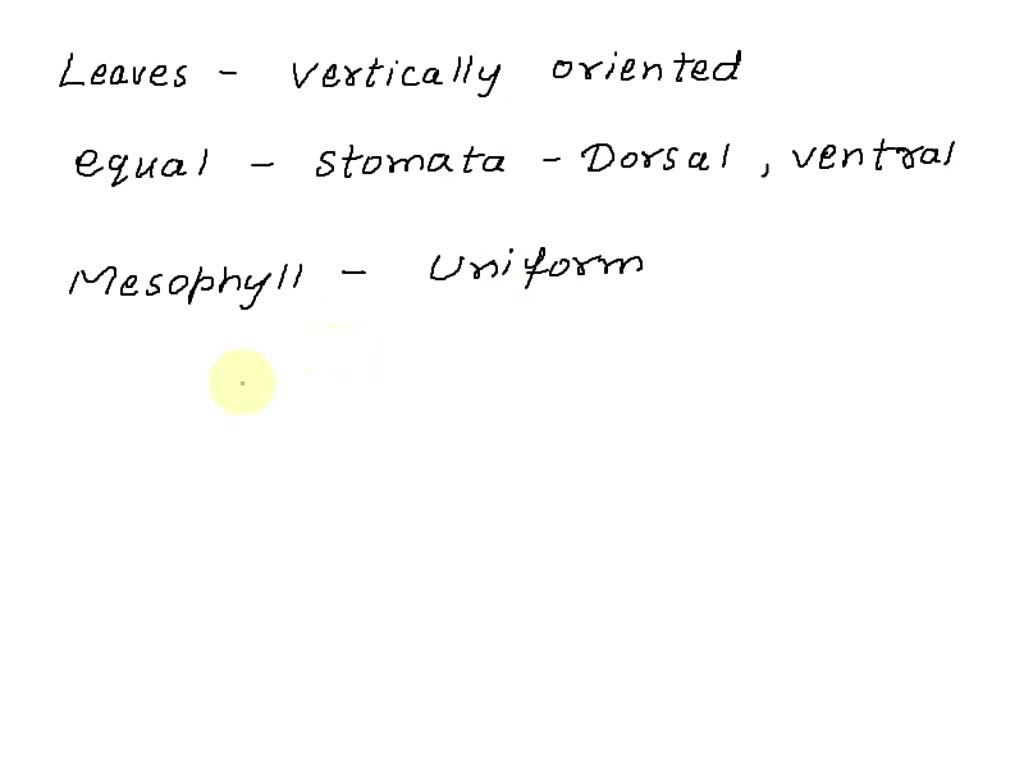 Leaves - vertically oriented
equal - stomata - Dorsal, ventral
Mesophyll - Uniform